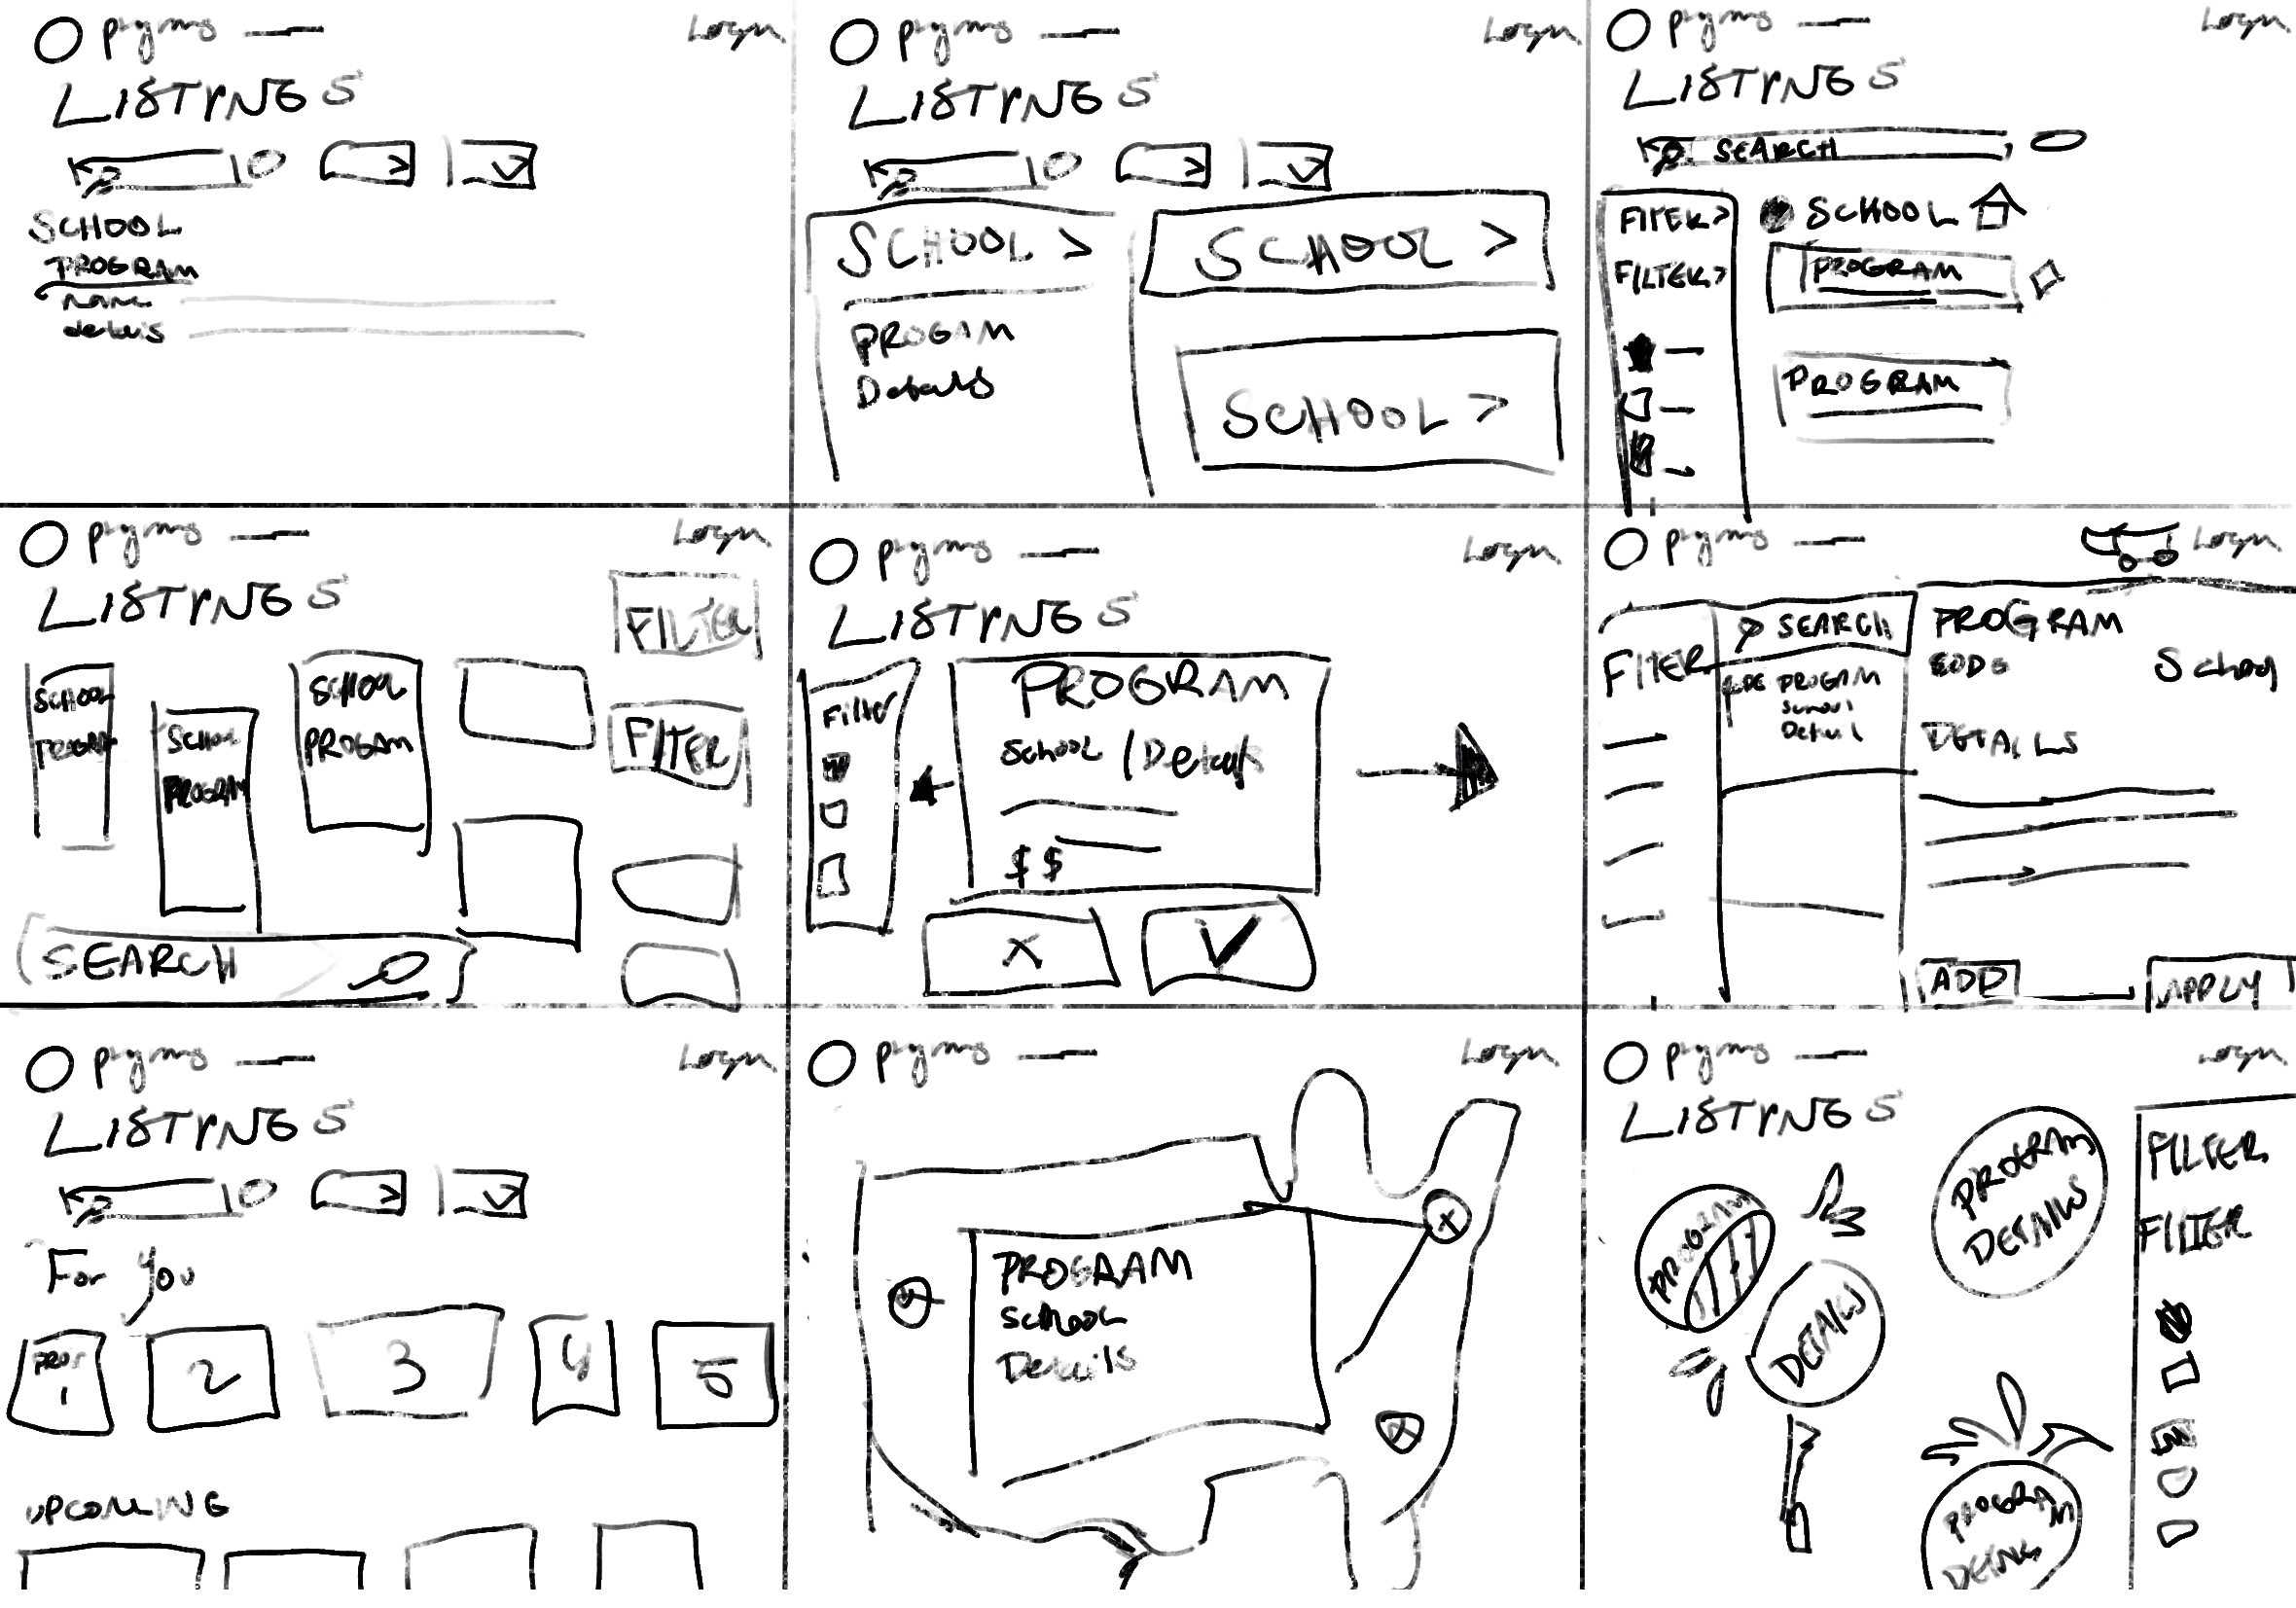 Login
LISTINGS
SCHOOL
PROGRAM
name
details
Login
LISTINGS
SCHOOL >
PROGAM
Details
SCHOOL >
SCHOOL >
Login
LISTINGS
SEARCH
FILTER >
FILTER >
SCHOOL
PROGRAM
PROGRAM
Login
LISTINGS
FILTER
FILTER
SCHOOL
PROGRAM
SCHOOL
PROGRAM
SCHOOL
PROGAM
SEARCH
Login
LISTINGS
Filter
PROGRAM
School / Details
$$
X
Login
FILTER
SEARCH
CODE PROGAM
School
Detail
PROGRAM
CODE
School
DETAILS
ADD
APPLY
Login
LISTINGS
For you
1
2
3
4
5
UPCOMING
Login
PROGRAM
SCHOOL
Details
Login
LISTINGS
PROGRAM
DETAILS
PROGRAM
DETAILS
PROGRAM
DETAILS
FILTER
FILTER